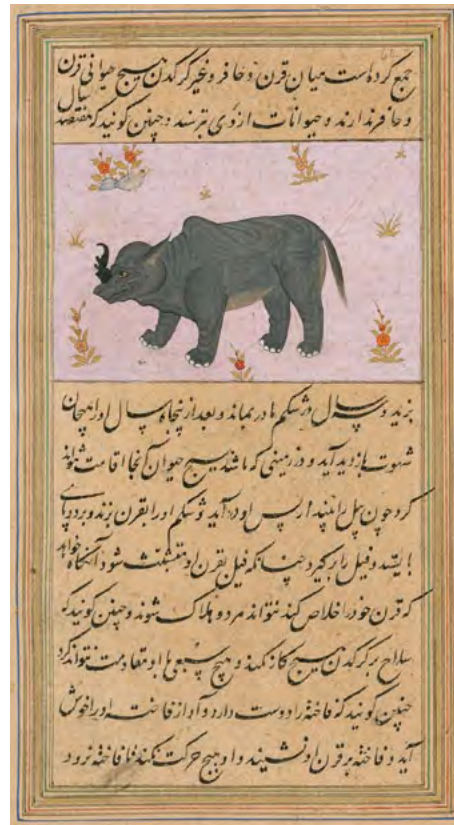 جمع کرده است میان قرن و حافر و غیر کرکدن هیچ حیوانی قرن
و حافر ندارند و حیوانات از وی بترسند و چنین کویند که هفتصد سال
بزید و سه سال در شکم مادر بماند و بعد از پنجاه سال او را هیجان
شهوت بازدید آید و در زمینی که باشد هیچ حیوان آنجا اقامت نتواند
کرد چون پیل را بیند از پس او درآید و شکم او را بقرن بزند و بر دو پای
بایستد و فیل را برکیرد چنانکه فیل بقرن او متشبث شود آنکاه خواهد
که قرن خود را خلاص کند نتواند هر دو هلاک شوند و چنین کویند که
سلاح بر کرکدن هیچ کار نکند و هیچ سبعی با او مقاومت نتواند کرد
چنین کویند که فاخته را دوست دارد و آواز فاخته او را خوش
آید و فاخته بر قرن او نشیند و او هیچ حرکت نکند تا فاخته نرود